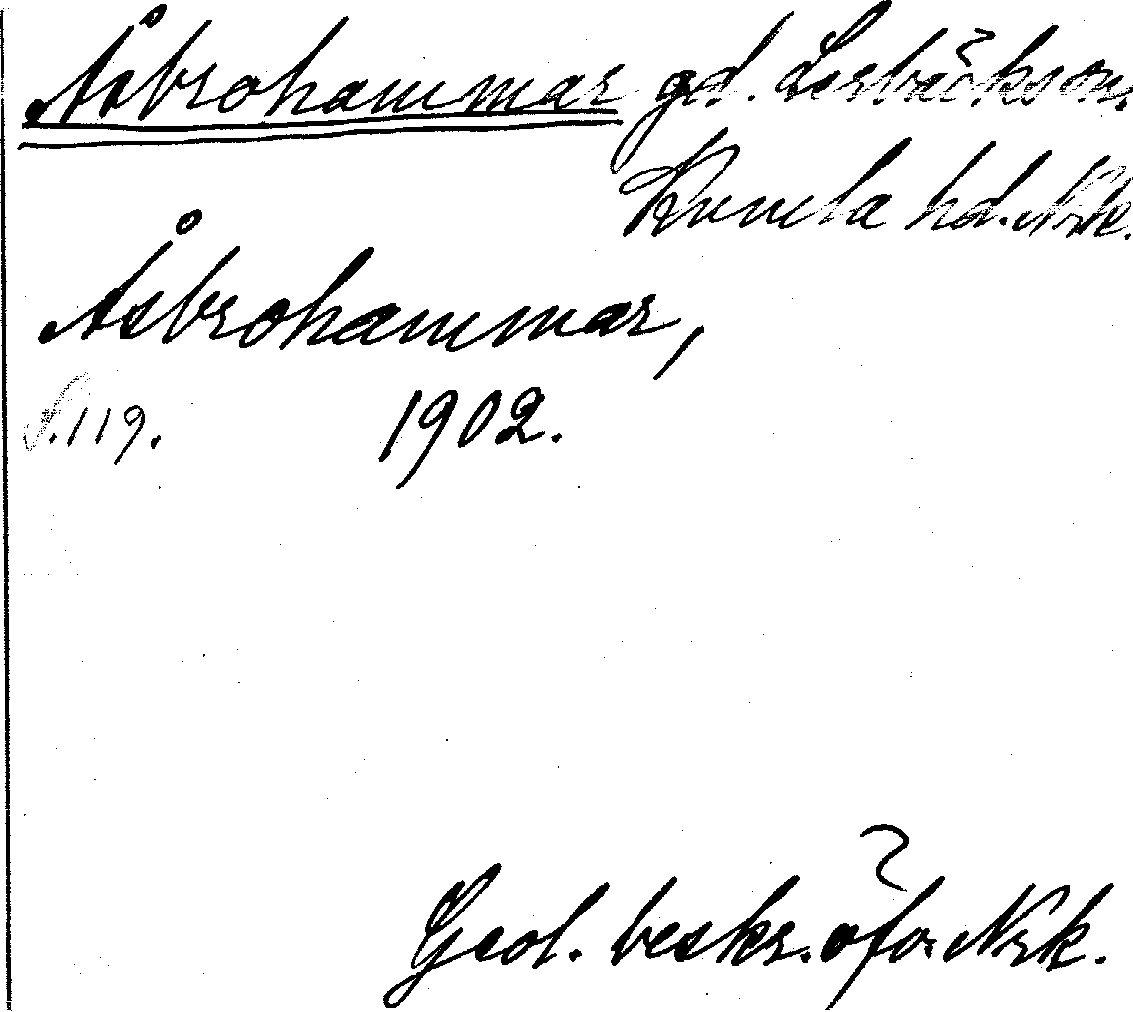 Åsbrohammar gd. Lerbäcks sn.
Kumla hd. Nrk.
Åsbrohammar,
S. 119. 1902.
Geol. beskr. öfv. Nrk.